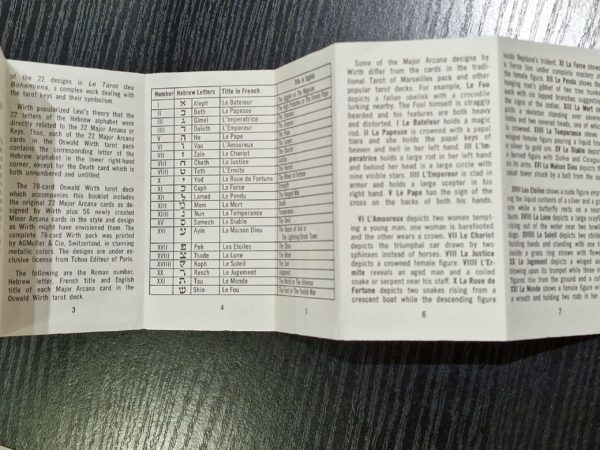 of the 22 designs in Le Tarot des
Bohemiens, a complex work dealing with
the tarot keys and their symbolism.
Wirth popularized Levi's theory that the
22 letters of the Hebrew alphabet were
directly related to the 22 Major Arcana or
Keys. Thus, each of the 22 Major Arcana
cards in the Oswald Wirth tarot pack
contains the corresponding letter of the
Hebrew alphabet in the lower right-hand
corner, except for the Death card which is
both unnumbered and untitled.
The 78-card Oswald Wirth tarot deck
which accompanies this booklet includes
the original 22 Major Arcana cards as de-
signed by Wirth plus 56 newly created
Minor Arcana cards in the style and design
as Wirth might have envisioned them. The
complete 78-card Wirth pack was printed
by AGMuller & Cie, Switzerland, in stunning
metallic colors. The designs are under ex-
clusive license from Tchou Editeur of Paris.
The following are the Roman number,
Hebrew letter, French title and English
title of each Major Arcana card in the
Oswald Wirth tarot deck.
3
Number Hebrew Letters Title in French Title in English
I א Aleph Le Bateleur
II ב Beth La Papesse
III ג Gimel L'Imperatrice
IIII ד Daleth L'Empereur
V ה He Le Pape
VI ו Vau L'Amoureux
VII ז Zain Le Chariot
VIII ח Cheth La Justice
VIIII ט Teth L'Ermite
X Yad La Roue de Fortune
XI כ Caph La Force
XII ל Lamed Le Pendu The Hanged Man
XIII מ Mem La Mort
XIIII נ Nun La Temperance Temperance
XV ס Samech Le Diable The Devil
XVI ע Ayin La Maison Dieu The House of God or
The Lightning-Struck Tower
XVII פ Peh Les Etoiles The Stars
XVIII צ Tsade La Lune The Moon
XVIIII ק Koph Le Soleil The Sun
XX ר Resch Le Jugement Judgment
XXI ת Tau Le Monde The World or The Universe
ש Shin Le Fou The Fool or The Foolish Man
4
5
Some of the Major Arcana designs by
Wirth differ from the cards in the tradi-
tional Tarot of Marseilles pack and other
popular tarot decks. For example, Le Fou
depicts a fallen obelisk with a crocodile
lurking nearby. The Fool himself is straggly
bearded and his features are both heavy
and distorted. I Le Bateleur holds a magic
rod. II La Papesse is crowned with a papal
tiara and she holds the papal keys of
heaven and hell in her left hand. III L'Im-
peratrice holds a large rod in her left hand
and behind her head is a large circle with
nine visible stars. IIII L'Empereur is clad in
armor and holds a large scepter in his
right hand. V Le Pape has the sign of the
cross on the backs of both his hands.
VI L'Amoureux depicts two women tempt-
ing a young man; one woman is barefooted
and the other wears a crown. VII Le Chariot
depicts the triumphal car drawn by two
sphinxes instead of horses. VIII La Justice
depicts a crowned female figure. VIIII L'Er-
mite reveals an aged man and a coiled
snake or serpent near his staff. X La Roue de
Fortune depicts two snakes rising from a
crescent boat while the descending figure
6
holds Neptune's trident. XI La Force shows
a force lion under complete mastery of
the female figure. XII Le Pendu shows the
hanging man's gibbet of two tree trunks
each with six lopped branches suggesting
the signs of the zodiac. XIII La Mort de-
picts a skeleton standing over several
limbs and two severed heads, one of which
is crowned. XIIII La Temperance shows a
winged female figure pouring a liquid from
a silver to gold urn. XV Le Diable depicts
a horned figure with Solve and Coagula
on its arms. XVI La Maison Dieu depicts the
usual tower struck by a bolt from the sun.
XVII Les Etoiles shows a nude figure empty-
ing the liquid contents of a silver and a gold
urn while a butterfly rests on a nearby
bush. XVIII La Lune depicts a large crayfish
rising out of the water near two howling
dogs. XVIIII Le Soleil depicts two children
holding hands and standing with one foot
inside a grass ring strewn with flowers.
XX Le Jugement depicts a winged angel
blowing upon its trumpet while three nude
figures rise from the ground and a coffin.
XXI Le Monde shows a female figure within
a wreath and holding two rods in her
7